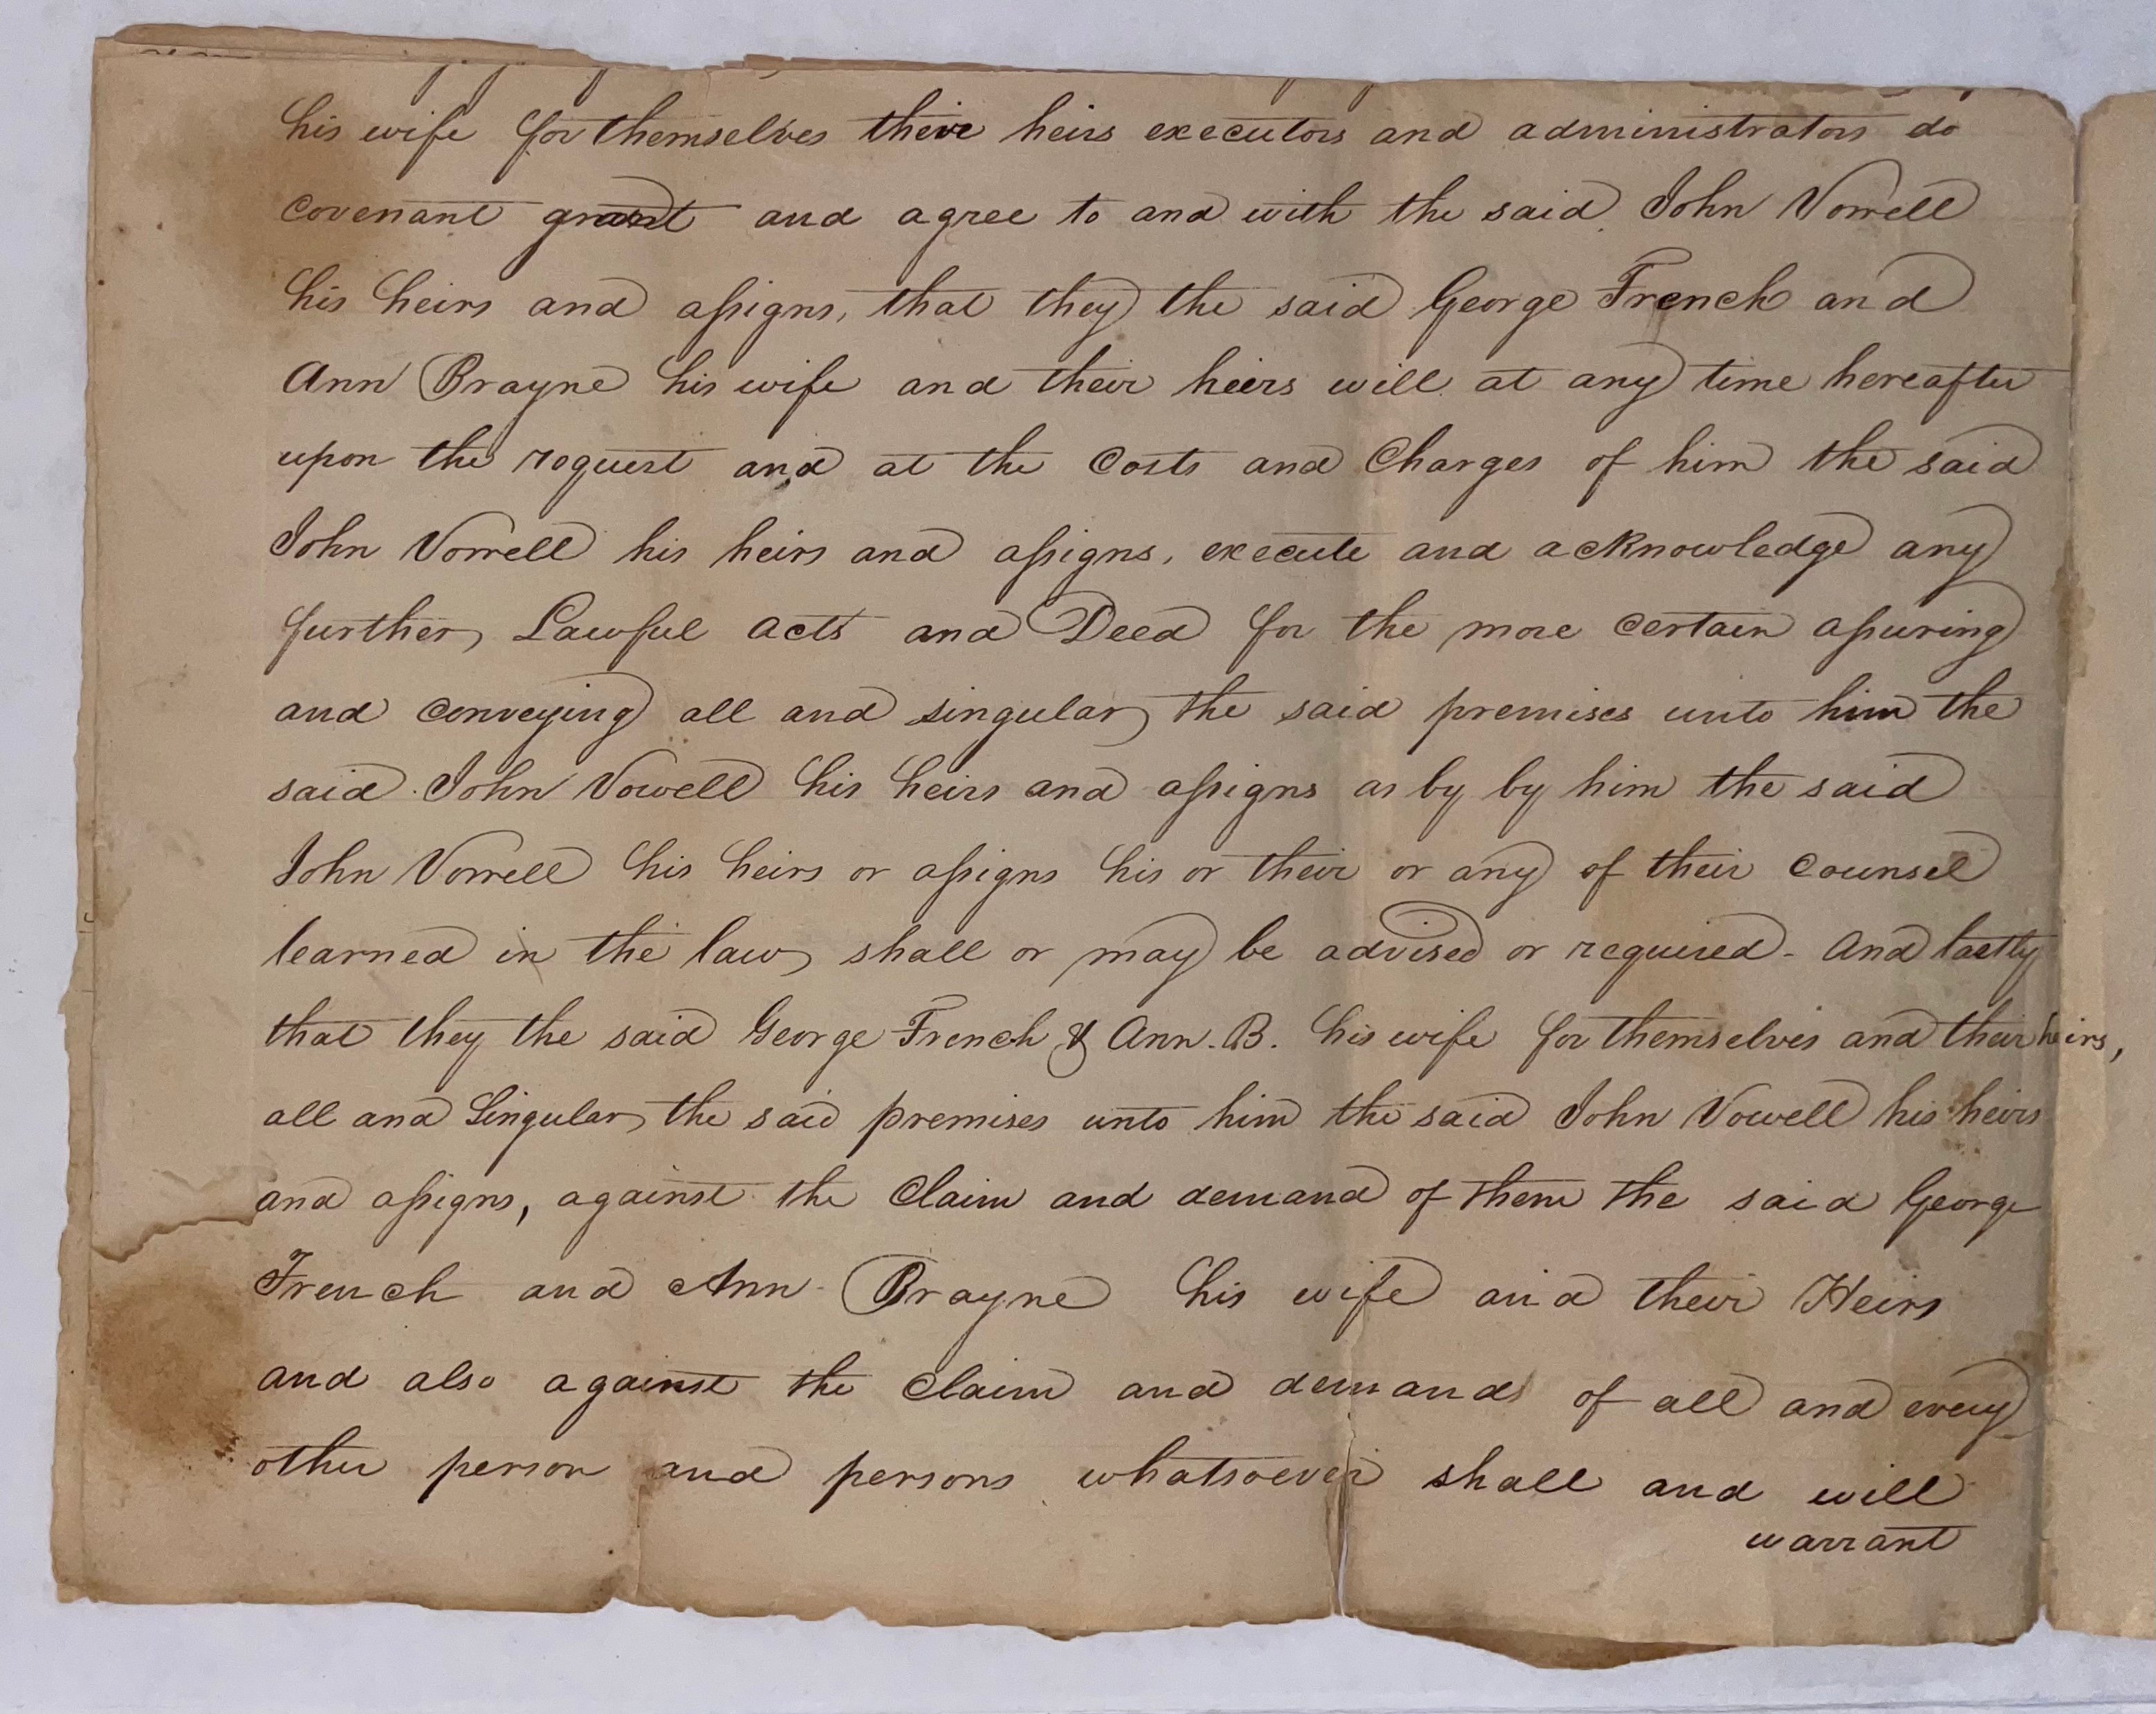 his wife for themselves their heirs executors and administrators do
covenant grant and agree to and with the said John Vowell
his heirs and aſsigns, that they the said George French and
Ann Brayne his wife and their heirs will at any time hereafter
upon the request and at the Costs and Charges of him the said
John Vowell his heirs and aſsigns, execute and acknowledge any
further, Lawful acts and Deed for the more certain aſsuring
and conveying all and singular, the said premises unto him the
said John Vowell his heirs and aſsigns as by by him the said
John Vowell his heirs or aſsigns his or their or any of their counsel
learned in the law, shall or may be advised or required - And lastly
that they the said George French & Ann. B. his wife for themselves and their heirs,
all and Singular, the said premises unto him the said John Vowell his heirs
and aſsigns, against the Claim and demand of them the said George
French and Ann Brayne his wife and their Heirs
and also against the Claim and demands of all and every
other person and persons whatsoever shall and will
warrant